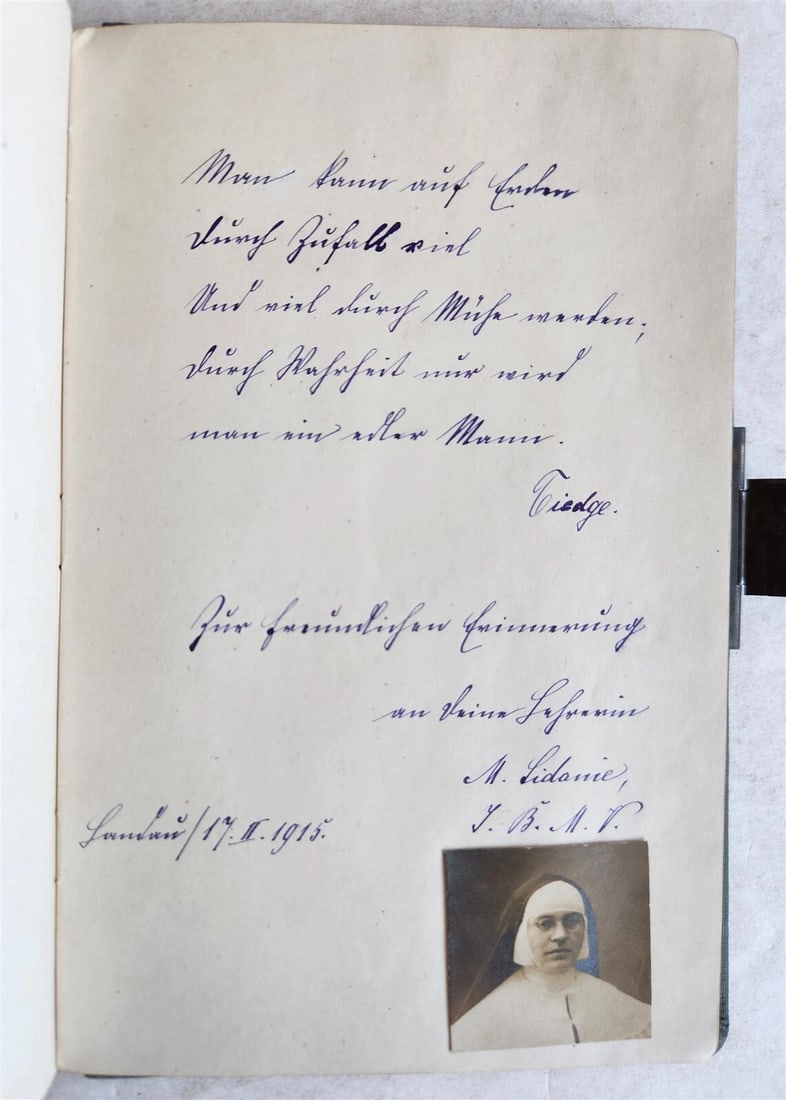 Man kann auf Erden
durch Zufall viel
Und viel durch Mühe werden;
durch Wahrheit nur wird
man ein edler Mann.
Tiedge.
Zur freundlichen Erinnerung
an deine Lehrerin
M. Sidonie,
I. B. M. V.
Landau/17. II. 1915.